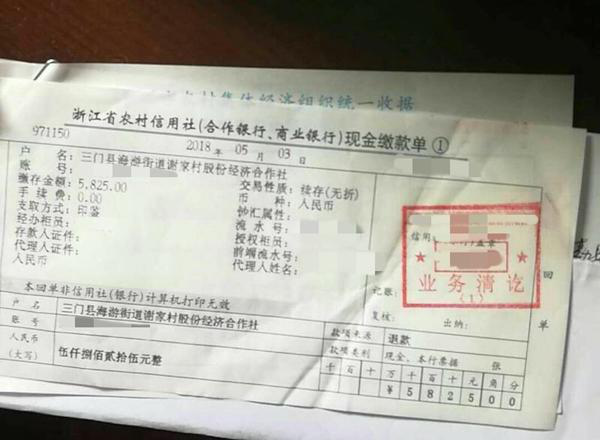 村集体经济组织统一收据
浙江省农村信用社(合作银行、商业银行)现金缴款单①
971150
2018 年 05 月 03 日
户 名: 三门县海游街道谢家村股份经济合作社
账 号:
缴存金额: 5,825.00 交易性质: 续存(无折)
手 续 费: 0.00 币 种: 人民币
支取方式: 印鉴 钞汇属性:
经办柜员: 流 水 号:
存款人证件: 授权柜员:
代理人证件: 前端流水号:
人民币 代理人姓名:
信用 盖章
业务清讫
(1)
回单
记账:
本回单非信用社(银行)计算机打印无效
复核: 出纳:
户 名 三门县海游街道谢家村股份经济合作社
账 号 款项来源 退款
人民币 款项类别 现金、本行票据 张
(大写) 伍仟捌佰贰拾伍元整 千百十万千百十元角分
¥582500